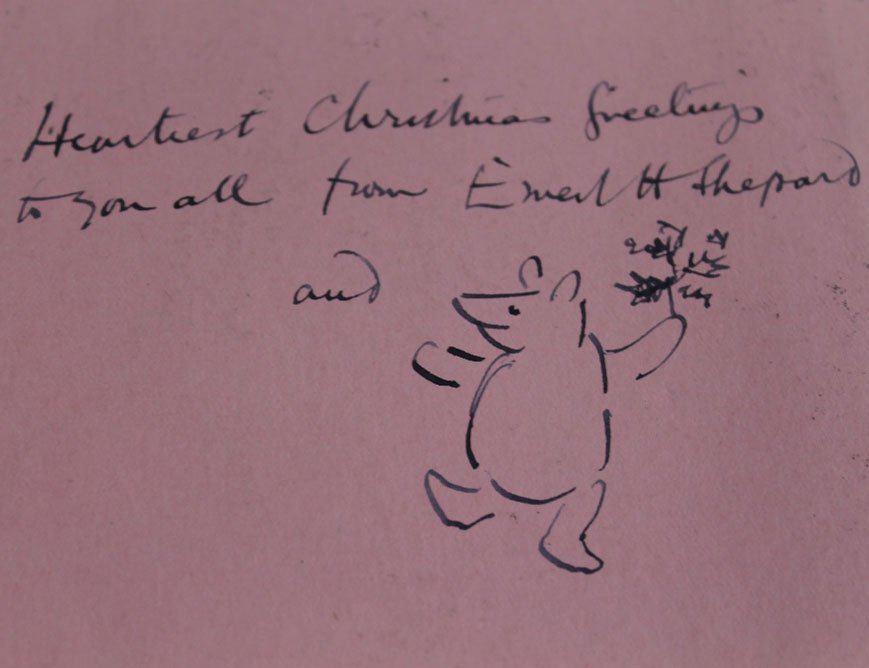 Heartiest Christmas Greetings
to you all from Ernest H Shepard
and